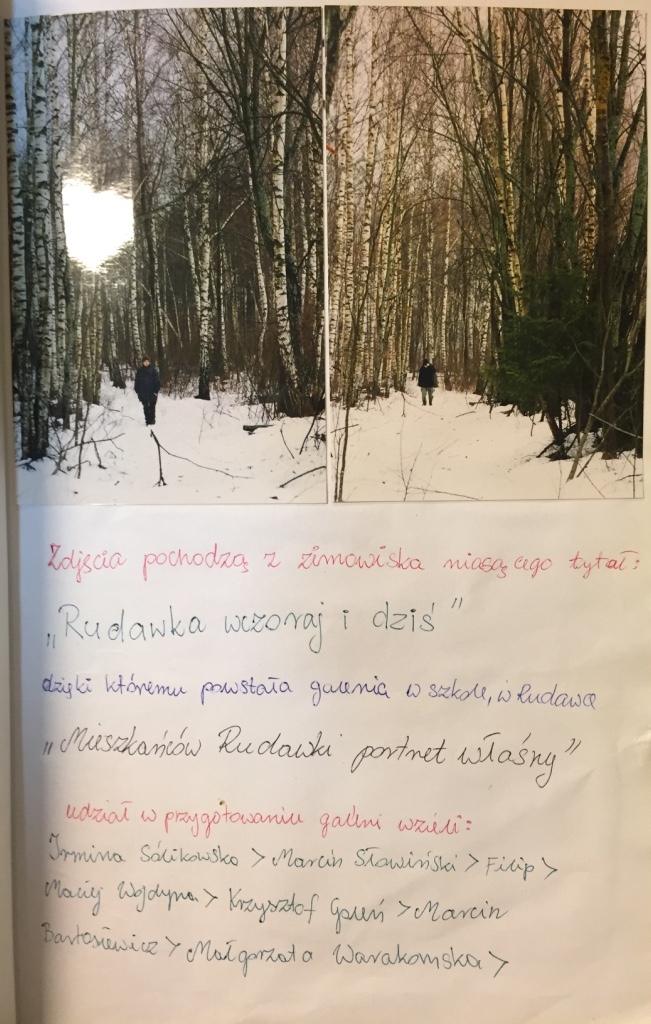 Zdjęcia pochodzą z zimowiska niosącego tytuł:
„Rudawka wczoraj i dziś"
dzięki któremu powstała galeria w szkole, w Rudawce
„Mieszkańców Rudawki portret własny"
udział w przygotowaniu galerii wzieli:
Irmina Sólikowsko > Marcin Słowiński > Filip >
Maciej Wojdyna > Krzysztof > Marcin
Bartosiewicz > Małgorzata Warakomska >